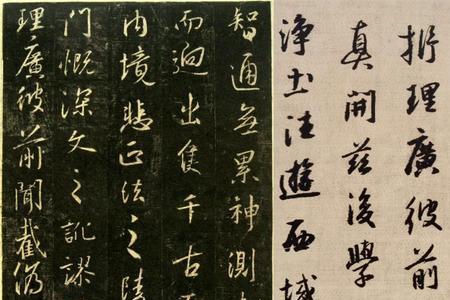 析理廣彼前
真開茲後學
淨土法遊西域
智通無累神測
而迥出隻千古
内境悲正法之陵
門慨深文之訛謬
理廣彼前聞截偽